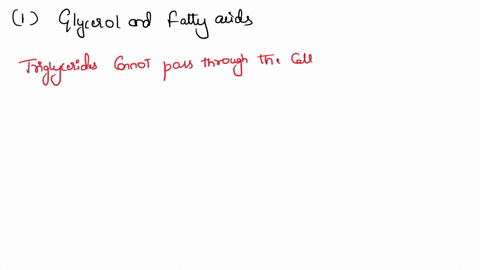 (1) Glycerol and fatty acids
Triglycerides cannot pass through the Cell